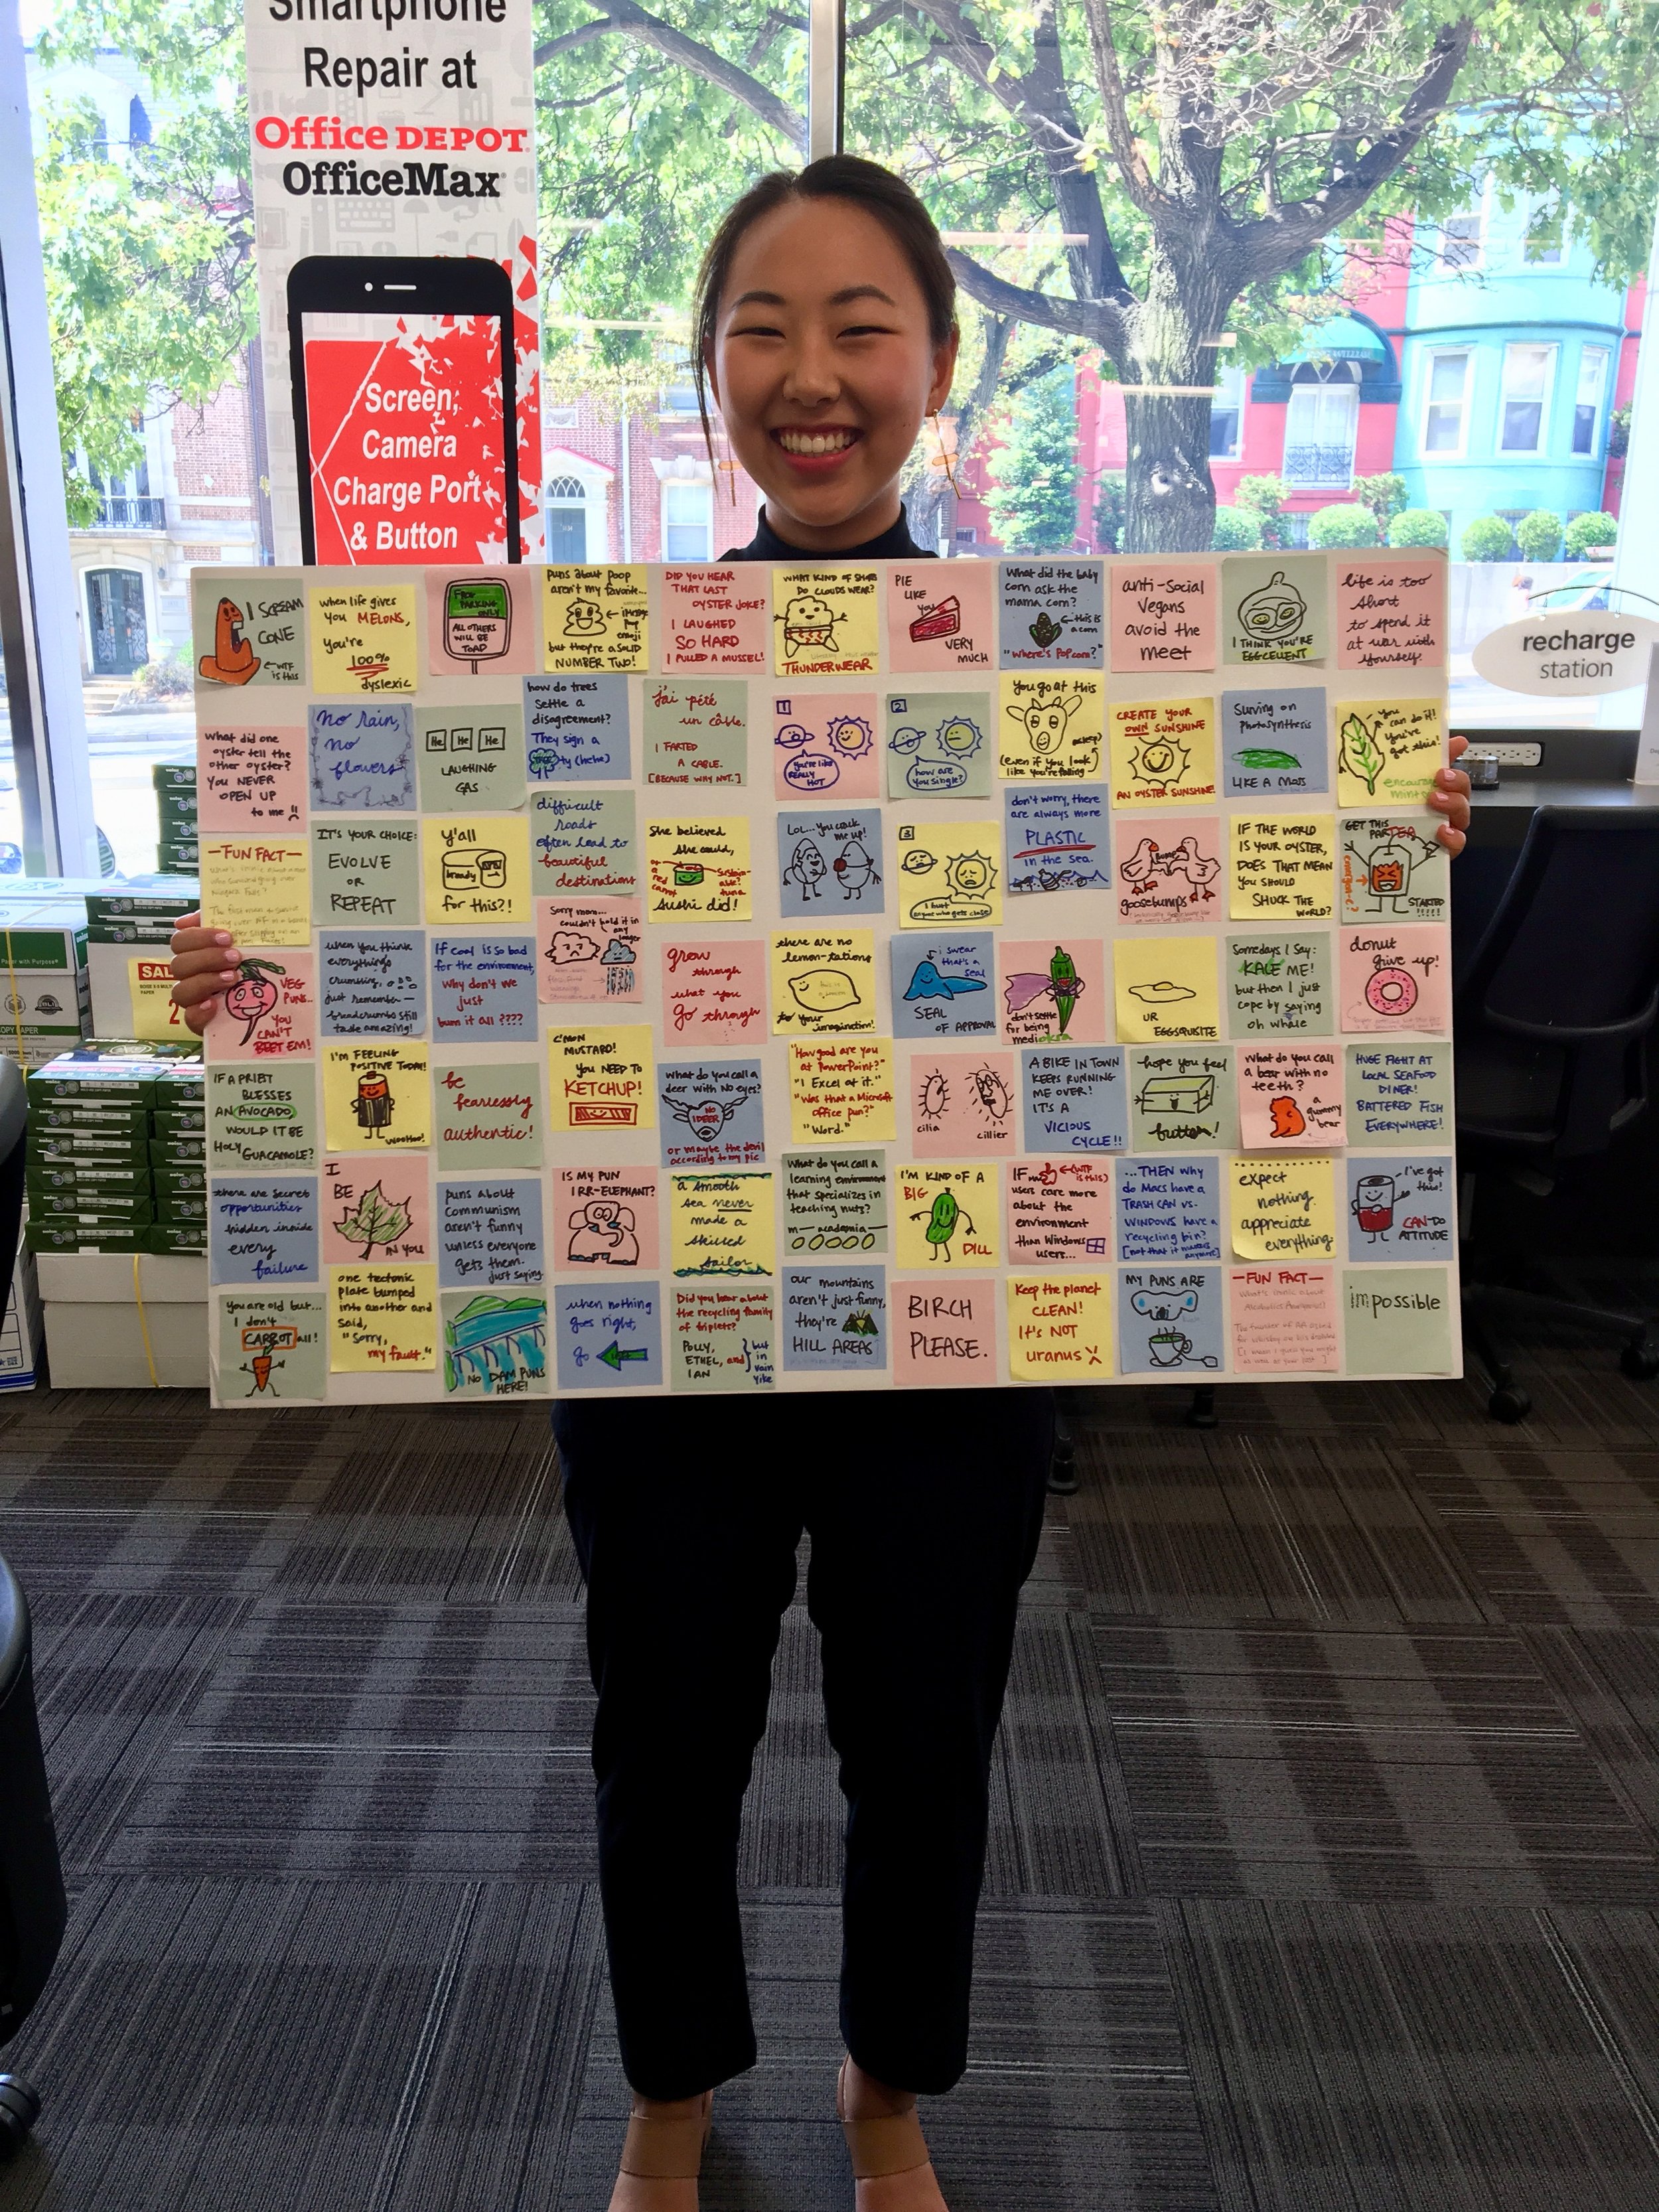 Smartphone
Repair at
Office DEPOT
OfficeMax
Screen,
Camera
Charge Port
& Button
recharge
station
I SCREAM
CONE
←WTF
is this
when life gives
you MELONS,
you're
100%
dyslexic
PARKING
ONLY
ALL OTHERS
WILL BE
TOAD
puns about poop
aren't my favorite...
emoji
but they're a SOLID
NUMBER TWO!
DID YOU HEAR
THAT LAST
OYSTER JOKE?
I LAUGHED
SO HARD
I PULLED A MUSSEL!
WHAT KIND OF
DO CLOUDS WEAR?
THUNDERWEAR
PIE
LIKE
YOU
VERY
MUCH
What did the baby
corn ask the
mama corn?
←this is
a corn
"Where's Popcorn?"
anti-social
vegans
avoid the
meet
I THINK YOU'RE
EGGCELLENT
life is too
short
to spend it
at war with
yourself.
what did one
oyster tell the
other oyster?
YOU NEVER
OPEN UP
to me
No rain,
no
flowers
He He He
LAUGHING
GAS
how do trees
settle a
disagreement?
They sign a
TREE ty (hehe)
j'ai pété
un câble.
I FARTED
A CABLE.
[BECAUSE WHY NOT.]
1
you're like
REALLY
HOT
2
how are
you single?
You goat this
(even if you look
like you're failing
CREATE YOUR
OWN SUNSHINE
AN OYSTER SUNSHINE
Surviving on
photosynthesis
LIKE A MOSS
you
can do it!
You've
got this!
encourage
mint
—FUN FACT—
IT'S YOUR CHOICE:
EVOLVE
OR
REPEAT
y'all
bready
for this?!
difficult
roads
often lead to
beautiful
destinations
She believed
she could,
sushi did!
LOL...you crack
me up!
3
I hurt
anyone who gets close
don't worry, there
are always more
PLASTIC
in the sea.
goosebumps
IF THE WORLD
IS YOUR OYSTER,
DOES THAT MEAN
YOU SHOULD
SHUCK THE
WORLD?
GET THIS
PARTEA
STARTED
VEG
PUNS...
YOU
CAN'T
BEET EM!
when you think
everything's
crumbling,
just remember—
breadcrumbs still
taste amazing!
If coal is so bad
for the environment,
Why don't we
just
burn it all ????
Sorry mom...
couldn't hold it in
any
longer
grow
through
what you
go through
there are no
lemon-tations
to your
imagination!
i swear
that's a
seal
SEAL
OF APPROVAL
don't settle
for being
mediokra
UR
EGGSQUISITE
Somedays I say:
KALE ME!
but then I just
cope by saying
oh whale
donut
give up!
IF A PRIEST
BLESSES
AN AVOCADO
WOULD IT BE
HOLY GUACAMOLE?
I'M FEELING
POSITIVE TODAY!
WOOHOO!
be
fearlessly
authentic!
C'MON
MUSTARD!
YOU NEED TO
KETCHUP!
what do you call a
deer with NO eyes?
NO
IDEER
or maybe the devil
according to my pic
"How good are you
at PowerPoint?"
"I Excel at it."
"Was that a Microsoft
office pun?"
"Word."
cilia
cillier
A BIKE IN TOWN
KEEPS RUNNING
ME OVER!
IT'S A
VICIOUS
CYCLE!!
hope you feel
butter!
what do you call
a bear with no
teeth?
a
gummy
bear
HUGE FIGHT AT
LOCAL SEAFOOD
DINER!
BATTERED FISH
EVERYWHERE!
there are secret
opportunities
hidden inside
every
failure
I
BE
LEAF
IN YOU
puns about
communism
aren't funny
unless everyone
gets them.
just saying.
IS MY PUN
IRR-ELEPHANT?
a smooth
sea never
made a
skilled
sailor
What do you call a
learning environment
that specializes in
teaching nuts?
m—academia—
I'M KIND OF A
BIG
DILL
IF
←(WTF
is this)
users care more
about the
environment
than Windows
users...
...THEN why
do Macs have a
TRASH CAN vs.
WINDOWS have a
recycling bin?
[not that it matters
anymore]
expect
nothing.
appreciate
everything.
I've got
this!
CAN-DO
ATTITUDE
You are old but...
I don't
CARROT all!
one tectonic
plate bumped
into another and
said,
"Sorry,
my fault."
NO DAM PUNS
HERE!
when nothing
goes right,
go
Did you hear about
the recycling family
of triplets?
POLLY,
ETHEL, and
IAN
our mountains
aren't just funny,
they're
HILL AREAS
BIRCH
PLEASE.
Keep the planet
CLEAN!
IT's NOT
uranus
MY PUNS ARE
—FUN FACT—
impossible